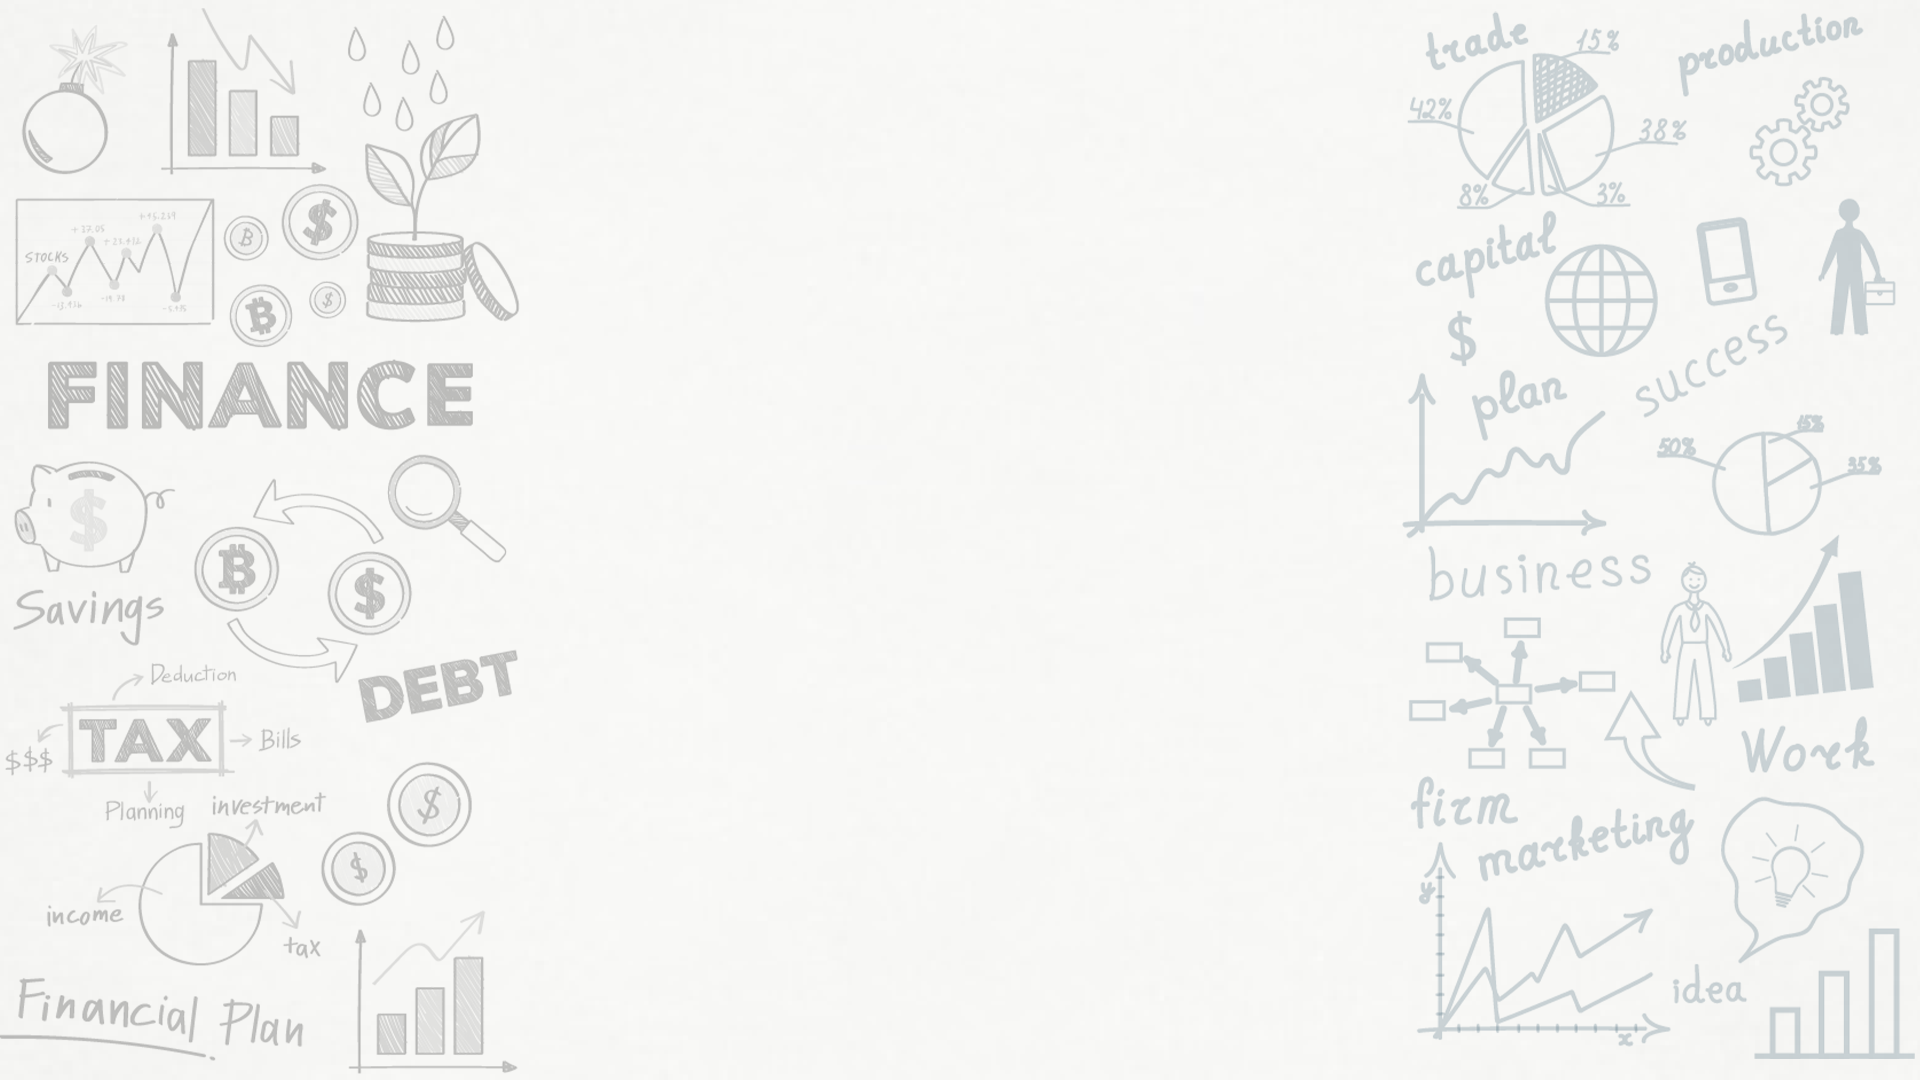 STOCKS
+ 37.05
-14.78
$
FINANCE
$
Savings
$
DEBT
Deduction
TAX
Bills
$$$
Planning
investment
$
$
income
tax
Financial Plan
trade
15%
production
42%
38%
8%
3%
capital
$
success
plan
15%
50%
35%
business
Work
firm
marketing
y
idea
x